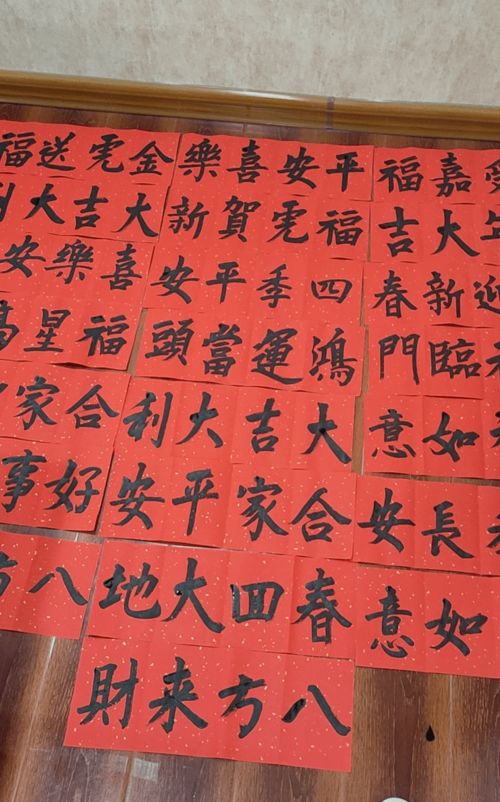 嘉福
平安喜樂
金虎送福
大吉
福虎賀新
大吉大利
迎新春
四季平安
喜樂安
臨門
鴻運當頭
福星高
如意
大吉大利
合家
長安
合家平安
好事
如意
春回大地
八方
八方来財